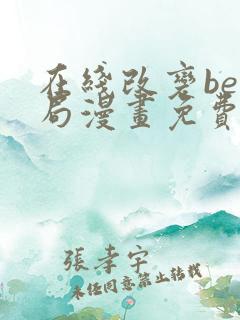 在綫改裦be
局漫畫免費
張孝宇
未经同意禁止转载